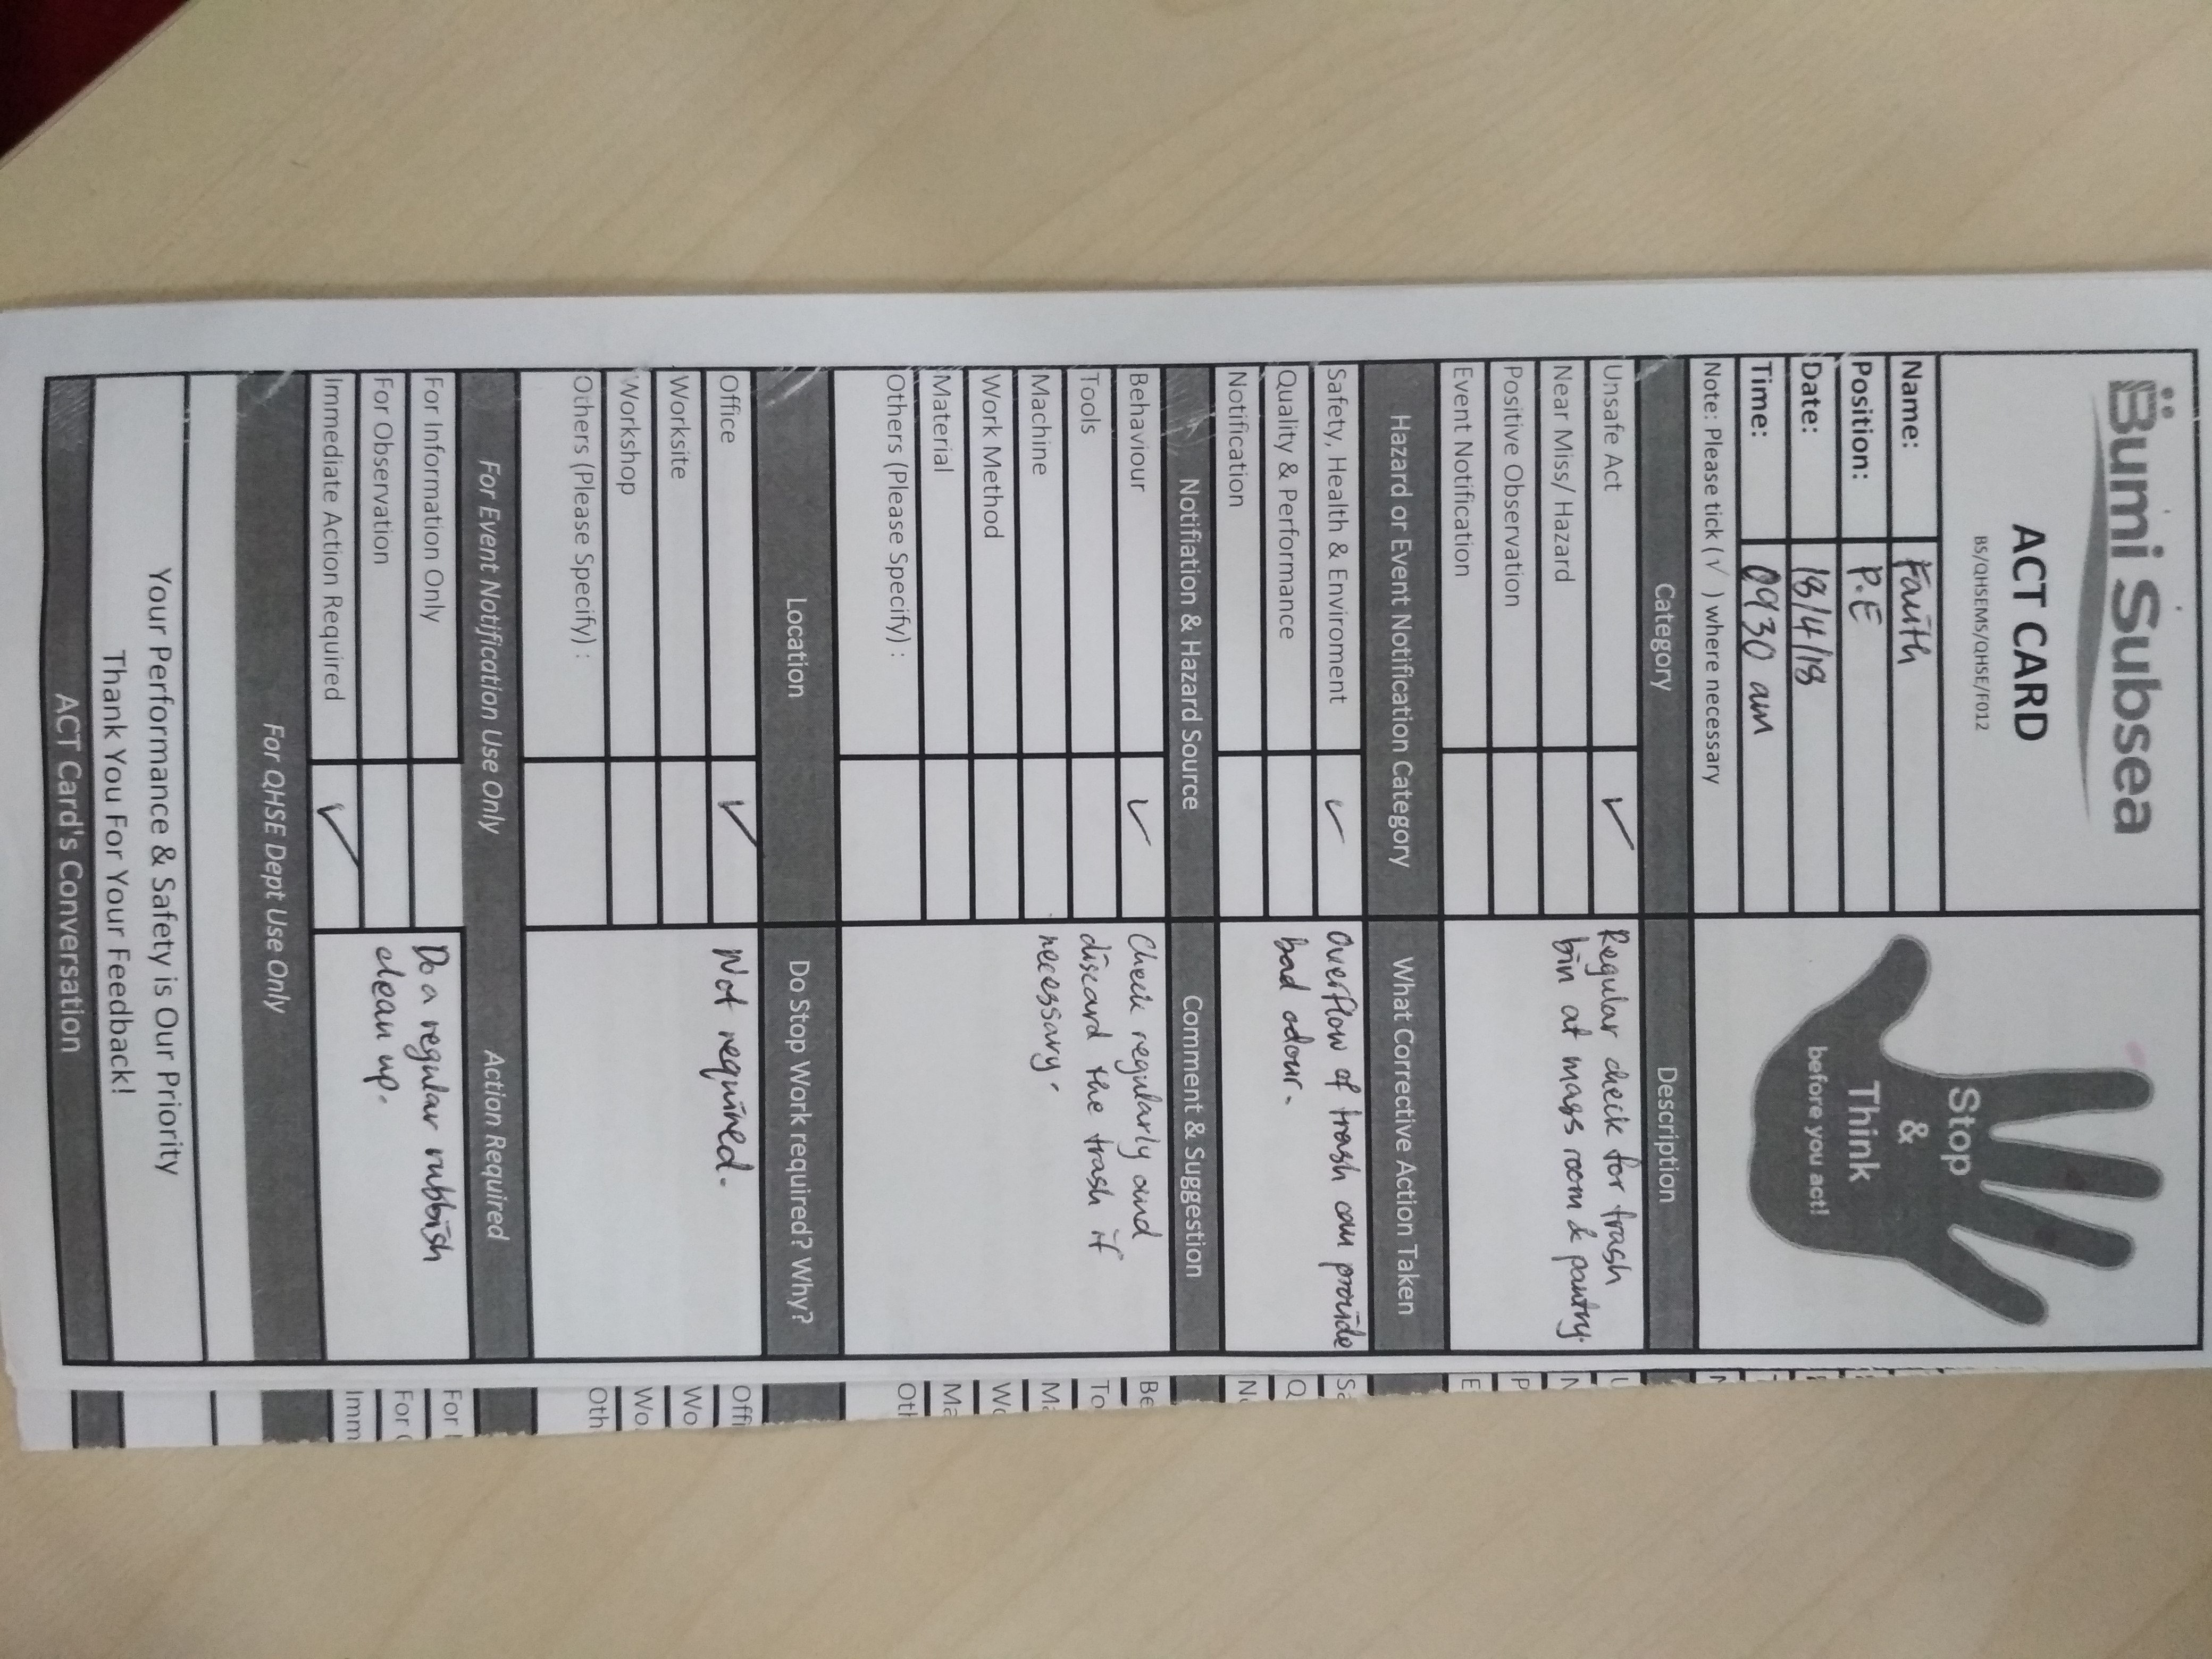 Bumi Subsea
ACT CARD
BS/QHSEMS/QHSE/F012
Stop
&
Think
before you act!
Name: Faith
Position: P.E
Date: 18/4/18
Time: 0930 am
Note: Please tick (√ ) where necessary
Category Description
Unsafe Act ✓ Regular check for trash
Near Miss/ Hazard bin at mass room & pantry.
Positive Observation
Event Notification
Hazard or Event Notification Category What Corrective Action Taken
Safety, Health & Enviroment ✓ Overflow of trash can provide
Quality & Performance bad odour.
Notification
Notifiation & Hazard Source Comment & Suggestion
Behaviour ✓ Check regularly and
Tools discard the trash if
Machine necessary.
Work Method
Material
Others (Please Specify) :
Location Do Stop Work required? Why?
Office ✓ Not required.
Worksite
Workshop
Others (Please Specify) :
For Event Notification Use Only Action Required
For Information Only Do a regular rubbish
For Observation clean up.
Immediate Action Required ✓
For QHSE Dept Use Only
Your Performance & Safety is Our Priority
Thank You For Your Feedback!
ACT Card's Conversation